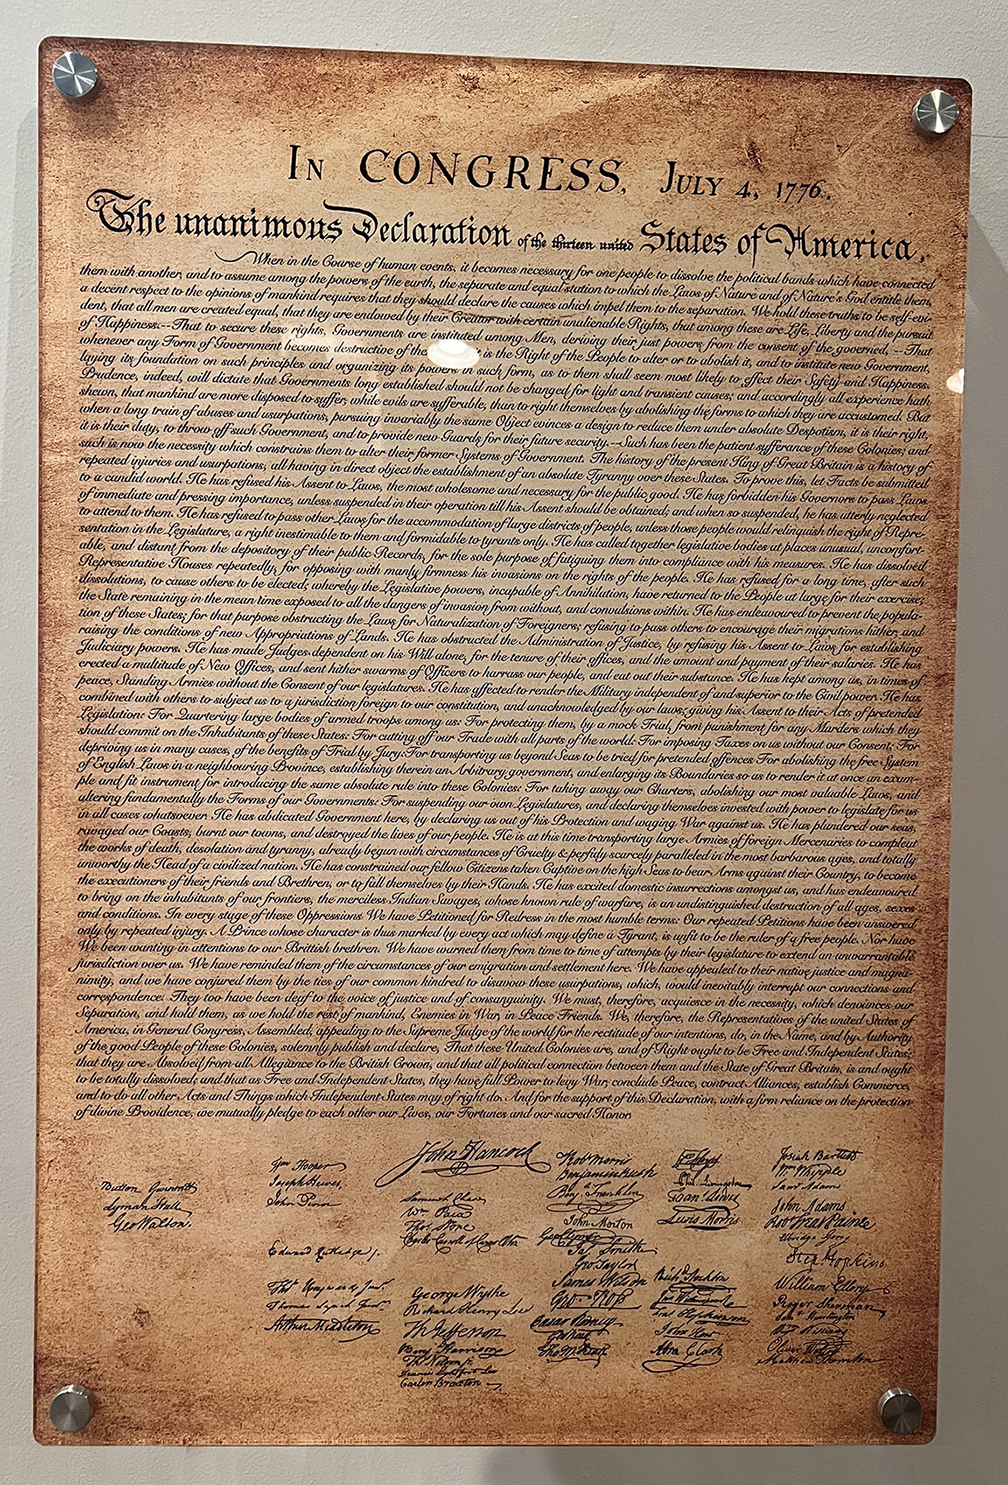 IN CONGRESS, JULY 4, 1776.
The unanimous Declaration of the thirteen united States of America,
When in the Course of human events, it becomes necessary for one people to dissolve the political bands which have connected
them with another, and to assume among the powers of the earth, the separate and equal station to which the Laws of Nature and of Nature's God entitle them,
a decent respect to the opinions of mankind requires that they should declare the causes which impel them to the separation. We hold these truths to be self-evi-
dent, that all men are created equal, that they are endowed by their Creator with certain unalienable Rights, that among these are Life, Liberty and the pursuit
of Happiness.--That to secure these rights, Governments are instituted among Men, deriving their just powers from the consent of the governed, --That
whenever any Form of Government becomes destructive of the is the Right of the People to alter or to abolish it, and to institute new Government,
laying its foundation on such principles and organizing its powers in such form, as to them shall seem most likely to effect their Safety and Happiness.
Prudence, indeed, will dictate that Governments long established should not be changed for light and transient causes; and accordingly all experience hath
shewn, that mankind are more disposed to suffer, while evils are sufferable, than to right themselves by abolishing the forms to which they are accustomed. But
when a long train of abuses and usurpations, pursuing invariably the same Object evinces a design to reduce them under absolute Despotism, it is their right,
it is their duty, to throw off such Government, and to provide new Guards for their future security.--Such has been the patient sufferance of these Colonies; and
such is now the necessity which constrains them to alter their former Systems of Government. The history of the present King of Great Britain is a history of
repeated injuries and usurpations, all having in direct object the establishment of an absolute Tyranny over these States. To prove this, let Facts be submitted
to a candid world. He has refused his Assent to Laws, the most wholesome and necessary for the public good. He has forbidden his Governors to pass Laws
of immediate and pressing importance, unless suspended in their operation till his Assent should be obtained; and when so suspended, he has utterly neglected
to attend to them. He has refused to pass other Laws for the accommodation of large districts of people, unless those people would relinquish the right of Repre-
sentation in the Legislature, a right inestimable to them and formidable to tyrants only. He has called together legislative bodies at places unusual, uncomfort-
able, and distant from the depository of their public Records, for the sole purpose of fatiguing them into compliance with his measures. He has dissolved
Representative Houses repeatedly, for opposing with manly firmness his invasions on the rights of the people. He has refused for a long time, after such
dissolutions, to cause others to be elected; whereby the Legislative powers, incapable of Annihilation, have returned to the People at large for their exercise;
the State remaining in the mean time exposed to all the dangers of invasion from without, and convulsions within. He has endeavoured to prevent the popula-
tion of these States; for that purpose obstructing the Laws for Naturalization of Foreigners; refusing to pass others to encourage their migrations hither, and
raising the conditions of new Appropriations of Lands. He has obstructed the Administration of Justice, by refusing his Assent to Laws for establishing
Judiciary powers. He has made Judges dependent on his Will alone, for the tenure of their offices, and the amount and payment of their salaries. He has
erected a multitude of New Offices, and sent hither swarms of Officers to harrass our people, and eat out their substance. He has kept among us, in times of
peace, Standing Armies without the Consent of our legislatures. He has affected to render the Military independent of and superior to the Civil power. He has
combined with others to subject us to a jurisdiction foreign to our constitution, and unacknowledged by our laws; giving his Assent to their Acts of pretended
Legislation: For Quartering large bodies of armed troops among us: For protecting them, by a mock Trial, from punishment for any Murders which they
should commit on the Inhabitants of these States: For cutting off our Trade with all parts of the world: For imposing Taxes on us without our Consent: For
depriving us in many cases, of the benefits of Trial by Jury: For transporting us beyond Seas to be tried for pretended offences For abolishing the free System
of English Laws in a neighbouring Province, establishing therein an Arbitrary government, and enlarging its Boundaries so as to render it at once an exam-
ple and fit instrument for introducing the same absolute rule into these Colonies: For taking away our Charters, abolishing our most valuable Laws, and
altering fundamentally the Forms of our Governments: For suspending our own Legislatures, and declaring themselves invested with power to legislate for us
in all cases whatsoever. He has abdicated Government here, by declaring us out of his Protection and waging War against us. He has plundered our seas,
ravaged our Coasts, burnt our towns, and destroyed the lives of our people. He is at this time transporting large Armies of foreign Mercenaries to compleat
the works of death, desolation and tyranny, already begun with circumstances of Cruelty & perfidy scarcely paralleled in the most barbarous ages, and totally
unworthy the Head of a civilized nation. He has constrained our fellow Citizens taken Captive on the high Seas to bear Arms against their Country, to become
the executioners of their friends and Brethren, or to fall themselves by their Hands. He has excited domestic insurrections amongst us, and has endeavoured
to bring on the inhabitants of our frontiers, the merciless Indian Savages, whose known rule of warfare, is an undistinguished destruction of all ages, sexes
and conditions. In every stage of these Oppressions We have Petitioned for Redress in the most humble terms: Our repeated Petitions have been answered
only by repeated injury. A Prince whose character is thus marked by every act which may define a Tyrant, is unfit to be the ruler of a free people. Nor have
We been wanting in attentions to our Brittish brethren. We have warned them from time to time of attempts by their legislature to extend an unwarrantable
jurisdiction over us. We have reminded them of the circumstances of our emigration and settlement here. We have appealed to their native justice and magna-
nimity, and we have conjured them by the ties of our common kindred to disavow these usurpations, which, would inevitably interrupt our connections and
correspondence. They too have been deaf to the voice of justice and of consanguinity. We must, therefore, acquiesce in the necessity, which denounces our
Separation, and hold them, as we hold the rest of mankind, Enemies in War, in Peace Friends. We, therefore, the Representatives of the united States of
America, in General Congress, Assembled, appealing to the Supreme Judge of the world for the rectitude of our intentions, do, in the Name, and by Authority
of the good People of these Colonies, solemnly publish and declare, That these United Colonies are, and of Right ought to be Free and Independent States;
that they are Absolved from all Allegiance to the British Crown, and that all political connection between them and the State of Great Britain, is and ought
to be totally dissolved; and that as Free and Independent States, they have full Power to levy War, conclude Peace, contract Alliances, establish Commerce,
and to do all other Acts and Things which Independent States may of right do. And for the support of this Declaration, with a firm reliance on the protection
of divine Providence, we mutually pledge to each other our Lives, our Fortunes and our sacred Honor.
Button Gwinnett
Lyman Hall
Geo Walton.
Wm Hooper
Joseph Hewes,
John Penn
Edward Rutledge
Thos Heyward Junr.
Thomas Lynch Junr.
Arthur Middleton
John Hancock
Samuel Chase
Wm Paca
Thos Stone
Charles Carroll of Carrollton
George Wythe
Richard Henry Lee
Th Jefferson
Benj Harrison
Thos Nelson jr.
Francis Lightfoot Lee
Carter Braxton
Robt Morris
Benjamin Rush
Benj Franklin
John Morton
Geo Clymer
Jas Smith
Geo Taylor
James Wilson
Geo Ross
Caesar Rodney
Geo Read
Tho M Kean
Phil Livingston
Lewis Morris
Richd Stockton
John Hart
Abra Clark
Josiah Bartlett
Wm Whipple
Saml Adams
John Adams
Robt Treat Paine
Elbridge Gerry
Step Hopkins
William Ellery
Roger Sherman
Saml Huntington
Wm Williams
Oliver Wolcott
Matthew Thornton